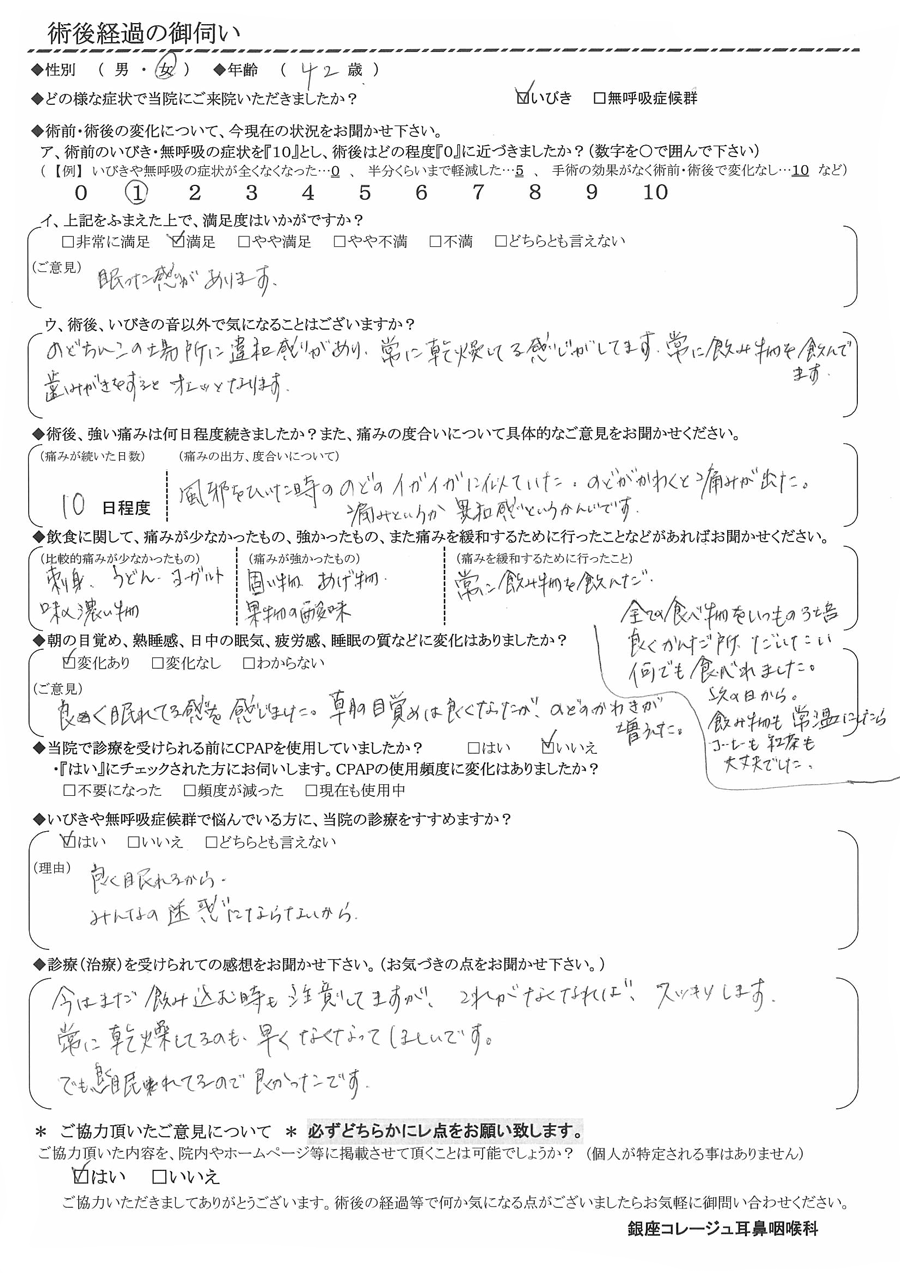 術後経過の御伺い
◆性別 （ 男 ・ 女 ） ◆年齢 （ 42 歳 ）
◆どの様な症状で当院にご来院いただきましたか？ ☑いびき □無呼吸症候群
◆術前・術後の変化について、今現在の状況をお聞かせ下さい。
ア、術前のいびき・無呼吸の症状を『10』とし、術後はどの程度『0』に近づきましたか？(数字を○で囲んで下さい)
（ 【例】 いびきや無呼吸の症状が全くなくなった…0 、 半分くらいまで軽減した…5 、 手術の効果がなく術前・術後で変化なし…10 など）
0 1 2 3 4 5 6 7 8 9 10
イ、上記をふまえた上で、満足度はいかがですか？
□非常に満足 ☑満足 □やや満足 □やや不満 □不満 □どちらとも言えない
(ご意見)
眠った感じがあります。
ウ、術後、いびきの音以外で気になることはございますか？
のどちんこの場所に違和感じがあり、常に乾燥してる感じがしてます。常に飲み物を飲んで
ます。
歯みがきをするとオエッとなります。
◆術後、強い痛みは何日程度続きましたか？また、痛みの度合いについて具体的なご意見をお聞かせください。
(痛みが続いた日数) (痛みの出方、度合いについて)
10 日程度
風邪をひいた時ののどのイガイガに似ていた。のどがかわくと痛みが出た。
痛みというか異和感というかんじです。
◆飲食に関して、痛みが少なかったもの、強かったもの、また痛みを緩和するために行ったことなどがあればお聞かせください。
(比較的痛みが少なかったもの) (痛みが強かったもの) (痛みを緩和するために行ったこと)
刺身、うどん、ヨーグルト
味の濃い物
固い物、あげ物、
果物の酸味
常に飲み物を飲んだ。
全ての食べ物をいつもの3倍
良くかんだ所、だいたい
何でも食べれました。
次の日から。
飲み物も常温にしたら
コーヒーも紅茶も
大丈夫でした。
◆朝の目覚め、熟睡感、日中の眠気、疲労感、睡眠の質などに変化はありましたか？
☑変化あり □変化なし □わからない
(ご意見)
良く眠れてる感を感じました。朝の目覚めは良くなったが、のどのかわきが
増えた。
◆当院で診療を受けられる前にCPAPを使用していましたか？ □はい ☑いいえ
・『はい』にチェックされた方にお伺いします。CPAPの使用頻度に変化はありましたか？
□不要になった □頻度が減った □現在も使用中
◆いびきや無呼吸症候群で悩んでいる方に、当院の診療をすすめますか？
☑はい □いいえ □どちらとも言えない
(理由)
良く眠れるから。
みんなの迷惑にならないから。
◆診療(治療)を受けられての感想をお聞かせ下さい。(お気づきの点をお聞かせ下さい。)
今はまだ飲み込む時も注意してますが、これがなくなれば、スッキリします。
常に乾燥してるのも、早くなくなってほしいです。
でも、良く眠れてるので良かったです。
＊ ご協力頂いたご意見について ＊ 必ずどちらかにレ点をお願い致します。
ご協力頂いた内容を、院内やホームページ等に掲載させて頂くことは可能でしょうか？ (個人が特定される事はありません)
☑はい □いいえ
ご協力いただきましてありがとうございます。術後の経過等で何か気になる点がございましたらお気軽に御問い合わせください。
銀座コレージュ耳鼻咽喉科